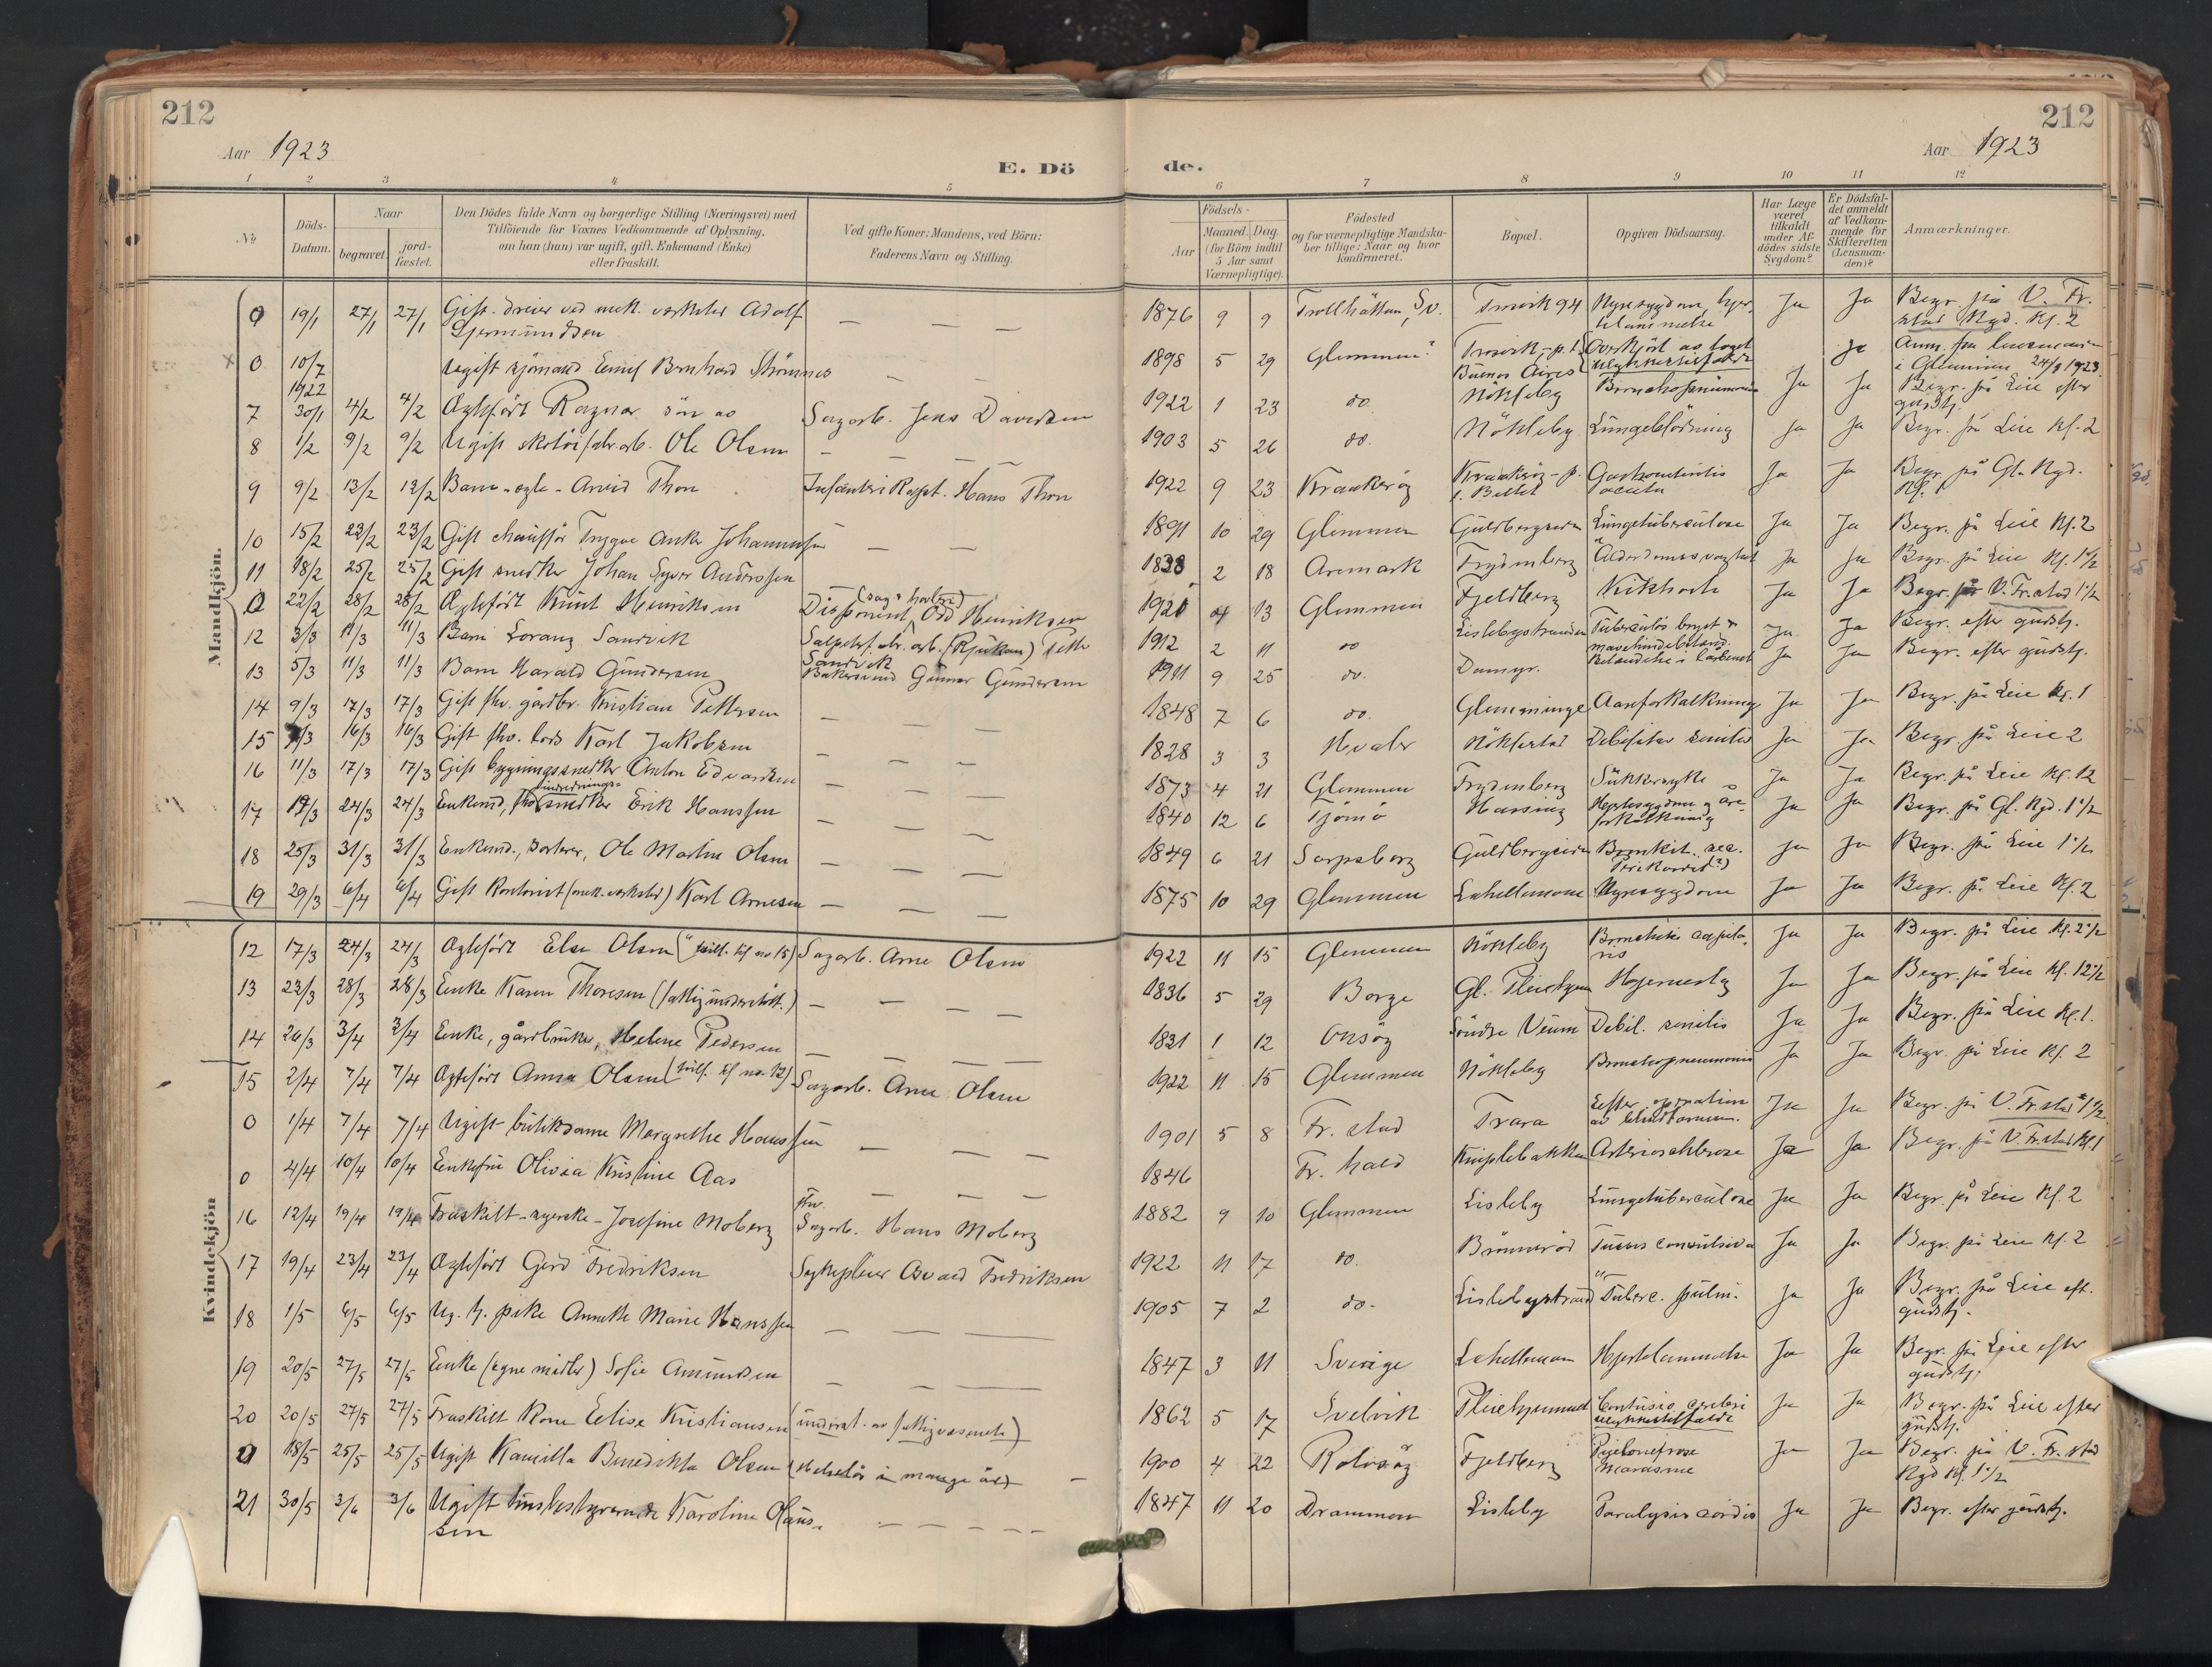 212
212
Aar 1923
E. Dö
de.
Aar 1923
1 2 3 4 5 6 7 8 9 10 11 12
No.
Döds-
Datum.
Naar
begravet.
jord-
fæstet.
Den Dödes fulde Navn og borgerlige Stilling (Næringsvei) med
Tilföiende for Voxnes Vedkommende af Oplysning,
om han (hun) var ugift, gift, Enkemand (Enke)
eller fraskilt.
Ved gifte Koner: Mandens, ved Börn:
Faderens Navn og Stilling.
Födsels-
Aar
Maaned. Dag.
(for Börn indtil
5 Aar samt
Værnepligtige).
Födested
og for værnepligtige Mandska-
ber tillige: Naar og hvor
konfirmeret.
Bopæl.
Opgiven Dödsaarsag.
Har Læge
været
tilkaldt
under Af-
dödes sidste
Sygdom?
Er Dödsfal-
det anmeldt
af Vedkom-
mende for
Skifteretten
(Lensman-
den)?
Anmærkninger.
Mandkjön.
0 19/1 27/1 27/1 Gift. dreier ved mek. verksted Adolf — — — 1876 9 9 Trollhättan, Sv. Trosvik 94 Nyresygdom, hjer- Ja Ja Begr. på V. Fr.
stad Kgd. Kl. 2
0 10/7 1922 Ugift sjömand Emil Bernhard Strömnes — — 1898 5 29 Glemmen? Trosvik - p.t. Overkjört av toget Ja Anm. fra lensmanden
Buenos Aires ulykkestilfælde i Glemmen 24/1 1923
7 30/1 4/2 4/2 Ægtefödt Ragnar sön av Sagarb. Jens Davidsen 1922 1 23 do. Nökleby Bronchopneumonie Ja Ja Begr. på Leie efter
gudstj.
8 1/2 9/2 9/2 Ugift skotöifabr.arb. Ole Olsen — — — 1903 5 26 do. Nökleby Lungeblödning Ja Ja Begr. på Leie Kl. 2
9 9/2 13/2 13/2 Barn - egte - Arvid Thon Infanteri Kapt. Hans Thon 1922 9 23 Kraakeröy Kraakeröy - p. Ja Ja Begr. på Gl. Kgd.
Kl. 1
10 15/2 23/2 23/2 Gift chauffør Trygve Anker Johannessen — — 1891 10 29 Glemmen Guldbergseien Lungetuberculose Ja Ja Begr. på Leie Kl. 2
11 18/2 25/2 25/2 Gift snedker Johan Syver Anderssen 1838 2 18 Aremark Frydenberg Alderdomssvaghet Ja Ja Begr. på Leie Kl. 1 1/2
0 22/2 28/2 28/2 Ægtefödt Knut Henriksen Disponent (sag & høvleri) Odd Henriksen 1921 4 13 Glemmen Fjeldberg Kikhoste Ja Ja Begr. på V. Fr.stad 1 1/2
12 3/3 11/3 11/3 Barn Lorang Sandvik Salpeterf. abr. arb. (Rjukan) Petter Sandvik 1912 2 11 do Lislebystranden Tuberculös bryst & Ja Ja Begr. efter gudstj.
13 5/3 11/3 11/3 Barn Harald Gundersen Bakersvend Gunnar Gundersen 1911 9 25 do. Damsyr. Ja Ja Begr. efter gudstj.
14 9/3 17/3 17/3 Gift fhv. gårdbr. Kristian Pettersen — — 1848 7 6 do. Glemminge Aareforkalkning Ja Ja Begr. på Leie Kl. 1
15 16/3 16/3 Gift fhv. lods Karl Jakobsen — — — 1828 3 3 Hvaler Debilitas senilis Ja Ja Begr. på Leie 2
16 11/3 17/3 17/3 Gift bygningssnedker Anton Edvardsen — — — 1873 4 21 Glemmen Frydenberg Sukkersyke Ja Ja Begr. på Leie Kl. 12
17 24/3 24/3 Enkemd, fhv. indrednings-snedker Erik Hanssen — — — 1840 12 6 Tjömö Hassing Hjertesygdom og åre-
forkalkning Ja Ja Begr. på Gl. Kgd. 1 1/2
18 25/3 31/3 31/3 Enkemd., sorterer, Ole Martin Olsen — — — 1849 6 21 Sarpsborg Guldbergseien Ja Ja Begr. på Leie 1 1/2
19 29/3 6/4 6/4 Gift Kontorist (mek. verksted) Karl Arnesen — — — 1875 10 29 Glemmen Lahellemoen Nyresygdom Ja Ja Begr. på Leie Kl. 2
Kvindekjön
12 17/3 24/3 24/3 Ægtefödt Else Olsen (tvill. til no 15) Sagarb. Arne Olsen 1922 11 15 Glemmen Nökleby Bronchitis capila-
ris Ja Ja Begr. på Leie Kl. 2 1/2
13 23/3 28/3 28/3 Enke Karen Thoresen (fattigunderstött.) — — — 1836 5 29 Borge Gl. Pleiehjem Ja Ja Begr. på Leie Kl. 12 1/2
14 26/3 3/4 3/4 Enke, gårdbruker, Helene Pedersen — — — 1831 1 12 Onsöy Söndre Veum Debil. senilis Ja Ja Begr. på Leie Kl. 1.
15 2/4 7/4 7/4 Ægtefödt Anna Olsen (tvill. til no. 12) Sagarb. Arne Olsen 1922 11 15 Glemmen Nökleby Bronchopneumonie Ja Ja Begr. på Leie Kl. 2
0 1/4 7/4 7/4 Ugift butikdame Margrethe Hanssen — — — 1901 5 8 Fr. stad Trara Efter operation
av blindtarmen. Ja Ja Begr. på V. Fr.stad 1 1/2
0 4/4 10/4 10/4 Enkefru Olivia Kristine Aas — — — 1846 Fr. hald Kniplebakken Arteriosclerose Ja Ja Begr. på V. Fr.stad Kl. 1
16 12/4 19/4 19/4 Fraskilt - syerske - Josefine Moberg fhv. Sagarb. Hans Moberg 1882 9 10 Glemmen Lisleby Lungetuberculose Ja Ja Begr. på Leie Kl. 2
17 19/4 23/4 23/4 Ægtefödt Gerd Fredriksen Sykepleier Osvald Fredriksen 1922 11 17 do. Brönneröd Tussis convulsiva Ja Ja Begr. på Leie Kl. 2
18 1/5 6/5 6/5 Ug. h. pike Annette Marie Hanssen — — — 1905 7 2 do. Lislebystrand Tuberc. pulm. Ja Ja Begr. på Leie eft.
gudstj.
19 20/5 27/5 27/5 Enke (egne midler) Sofie Amundsen — — — 1847 3 11 Sverige Lahellemoen Hjertelammelse Ja Ja Begr. på Leie efter
gudstj.
20 20/5 27/5 27/5 Fraskilt Kone Elise Kristiansen (underst. av fattigvæsenet) 1862 5 17 Svelvik Pleiehjemmet Contusio cerebri
ulykkestilfælde Ja Ja Begr. på Leie efter
gudstj.
0 18/5 25/5 25/5 Ugift Kamilla Benedikta Olsen (Helselös i mange år) — 1900 4 22 Rolvsöy Fjeldberg Ja Ja Begr. på V. Fr. stad
Kgd Kl. 1 1/2
21 30/5 3/6 3/6 Ugift husbestyrerinde Karoline Olaus-
sen — — — 1847 11 20 Drammen Lisleby Paralysis cordis Ja Ja Begr. efter gudstj.